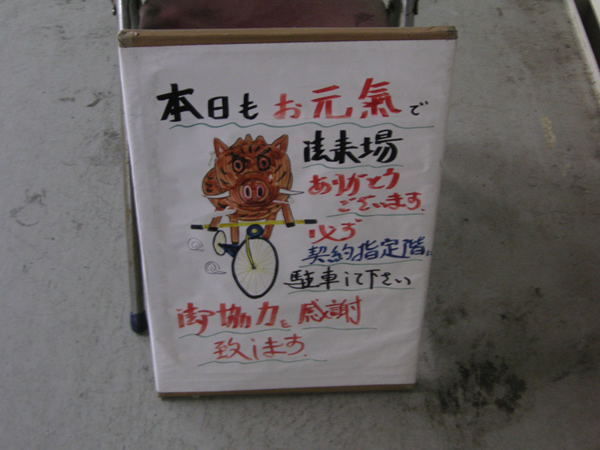 本日もお元氣で
御来場
ありがとう
ございます.
必ず
契約指定階に
駐車して下さい
御協力を感謝
致します.